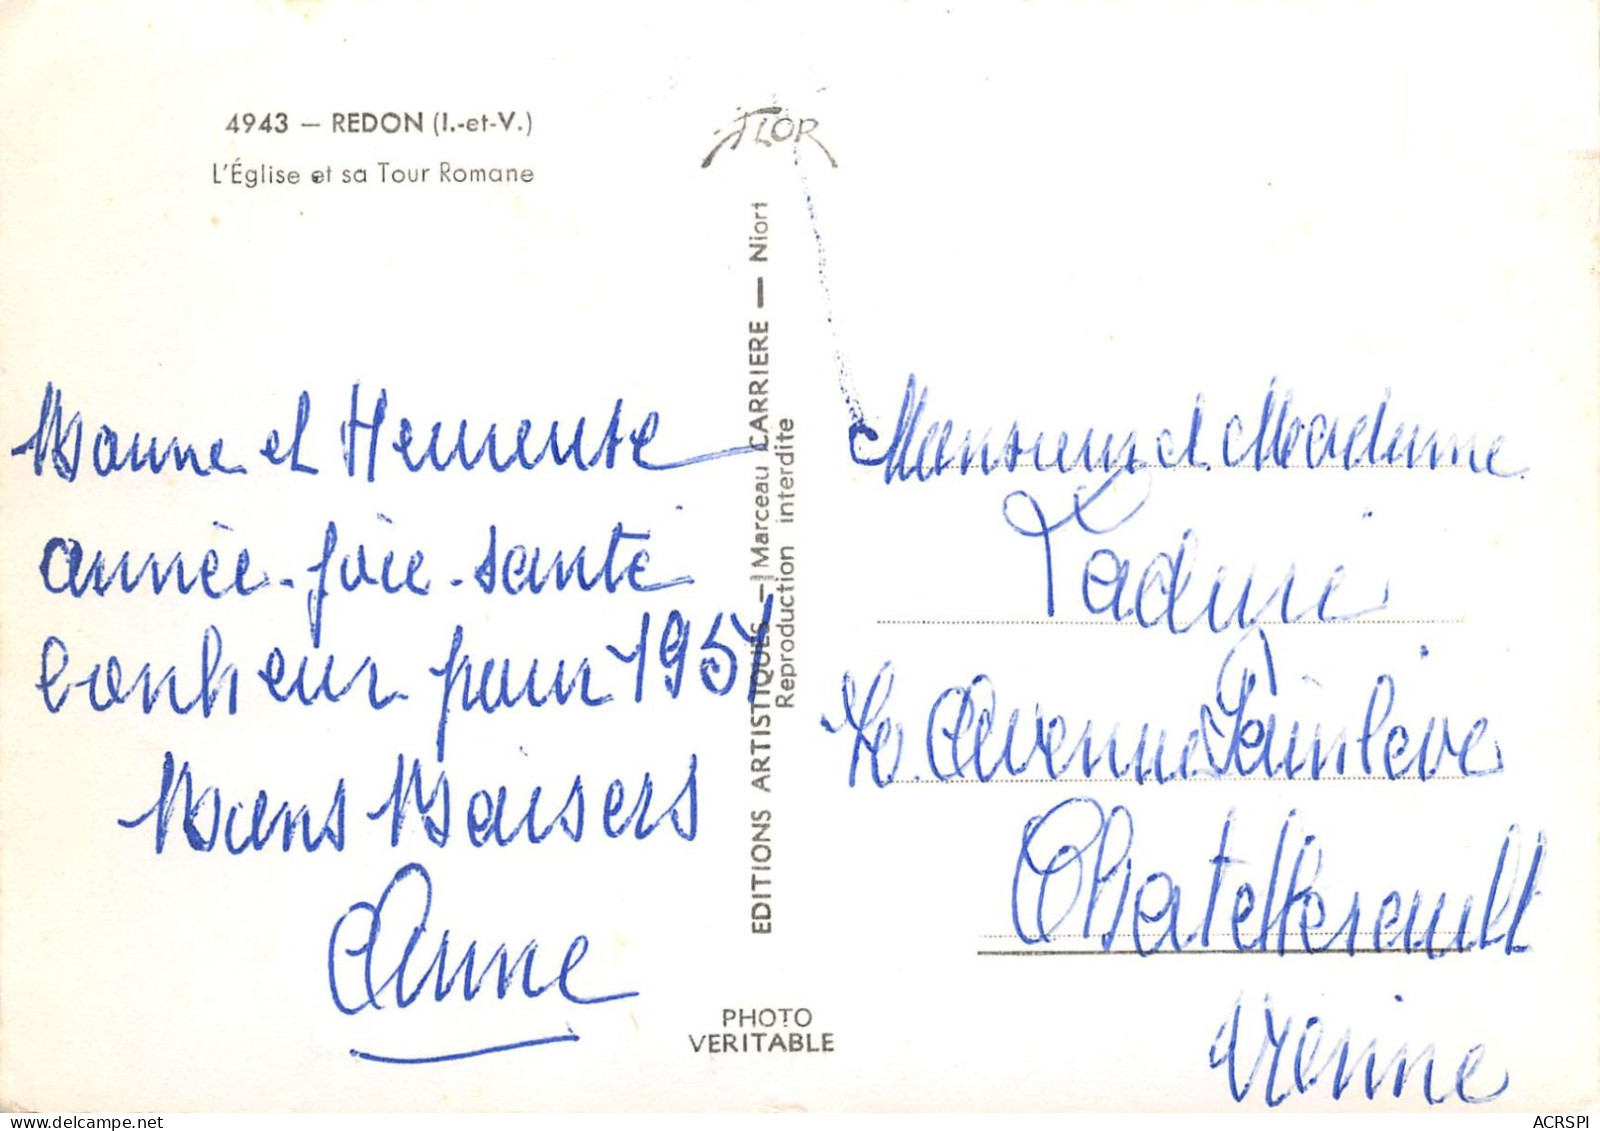 4943 — REDON (I.-et-V.)
L'Église et sa Tour Romane
FLOR
EDITIONS ARTISTIQUES — Marceau CARRIERE — Niort
Reproduction interdite
Bonne et Heureuse
année - joie - santé
bonheur pour 195
Bons Baisers
Anne
Monsieur et Madame
Avenue Painlevé
Chatellerault
Vienne
PHOTO
VERITABLE
ACRSPI